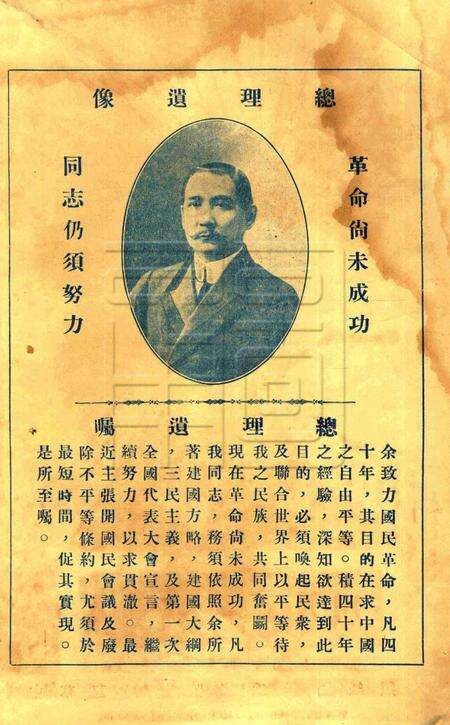 總理遺像
革命尚未成功
同志仍須努力
總理遺囑
余致力國民革命，凡四
十年，其目的在求中國
之自由平等。積四十年
之經驗，深知欲達到此
目的，必須喚起民衆，
及聯合世界上以平等待
我之民族，共同奮鬭。
現在革命尚未成功，凡
我同志，務須依照余所
著建國方略，建國大綱
，三民主義，及第一次
全國代表大會宣言，繼
續努力，以求貫澈。最
近主張開國民會議及廢
除不平等條約，尤須於
最短時間，促其實現。
是所至囑。